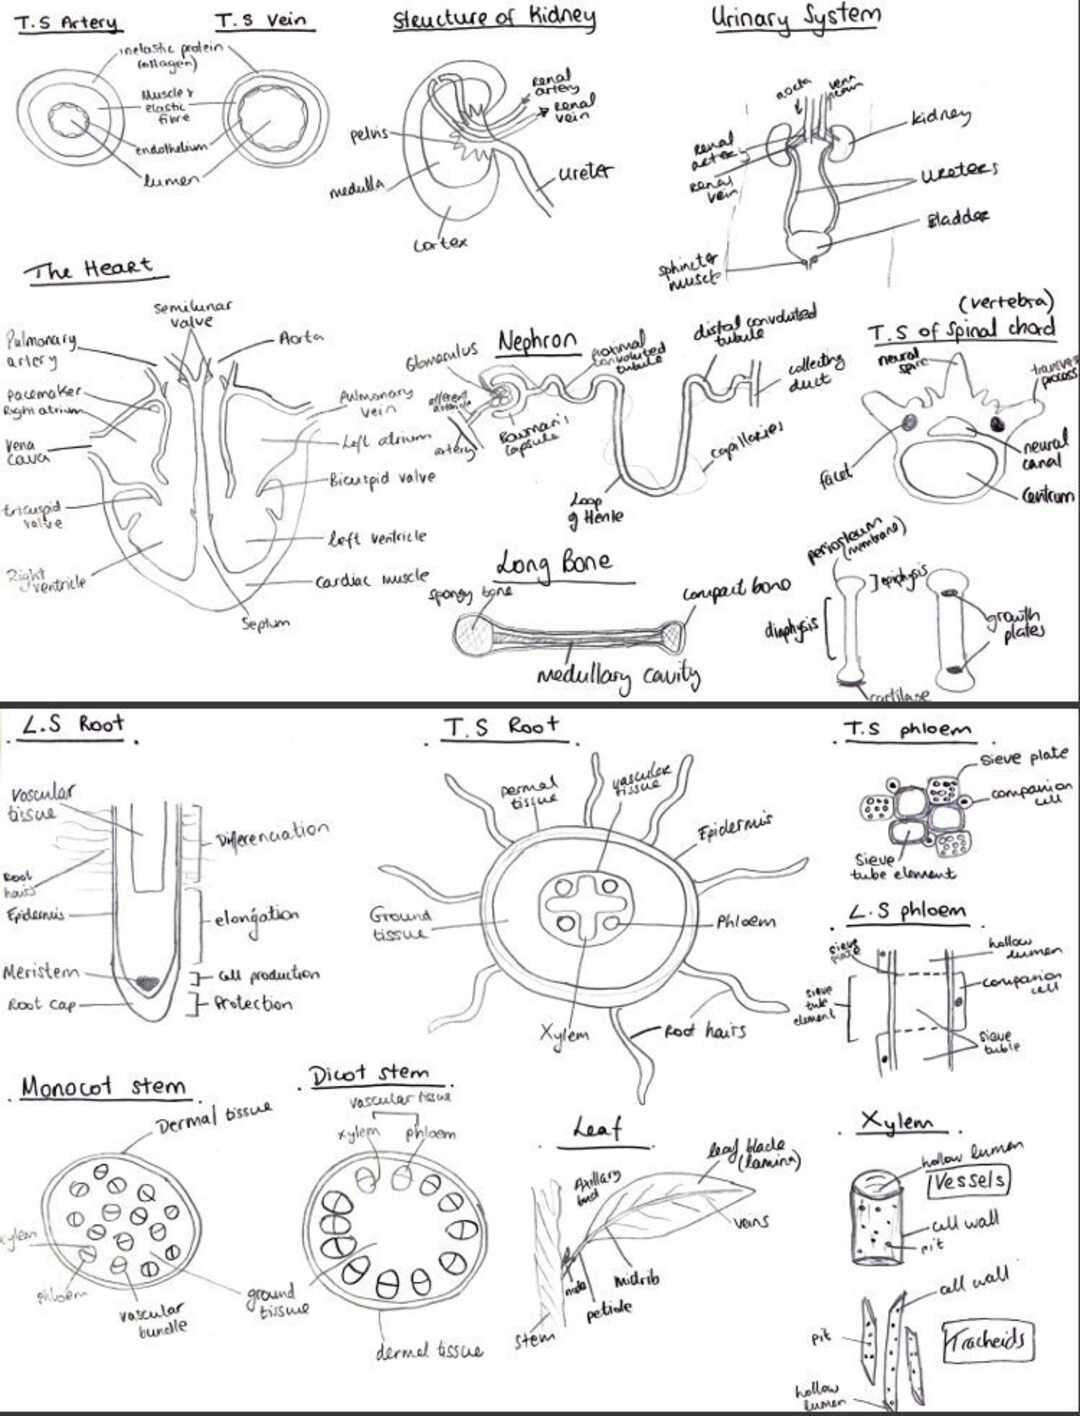 T.S Artery
T.S Vein
inelastic protein
(collagen)
Muscle &
elastic
fibre
endothelium
lumen
Structure of Kidney
Renal
artery
Renal
vein
pelvis
medulla
ureter
Cortex
Urinary System
aorta
vena
kidney
renal
artery
renal
vein
ureters
Bladder
sphincter
muscle
The Heart
Semilunar
valve
Pulmonary
artery
Aorta
pacemaker
Right atrium
Pulmonary
vein
Vena
cava
Left atrium
Bicuspid valve
tricuspid
valve
left ventricle
Right
ventricle
Cardiac muscle
Septum
Nephron
Glomerulus
proximal
convoluted
tubule
distal convoluted
tubule
collecting
duct
afferent
arteriole
artery
Bowman's
capsule
capillaries
Loop
of Henle
(vertebra)
T.S of Spinal chord
neural
spine
transverse
process
facet
neural
canal
Centrum
Long Bone
spongy bone
compact bone
medullary cavity
periosteum
(membrane)
epiphysis
diaphysis
growth
plates
cartilage
L.S Root
vascular
tissue
Differenciation
Root
hairs
Epidermis
elongation
Meristem
Cell production
Root cap
Protection
T.S Root
Dermal
tissue
vascular
tissue
Epidermis
Ground
tissue
Phloem
Xylem
Root hairs
T.S phloem
Sieve plate
companion
cell
Sieve
tube element
L.S phloem
sieve
plate
hollow
lumen
companion
cell
sieve
tube
element
sieve
tuble
Monocot stem
Dermal tissue
xylem
phloem
vascular
bundle
ground
tissue
Dicot stem
vascular tissue
xylem
phloem
dermal tissue
Leaf
Axillary
bud
leaf blade
(lamina)
veins
midrib
node
petiole
stem
Xylem
hollow lumen
Vessels
cell wall
pit
cell wall
pit
Tracheids
hollow
lumen